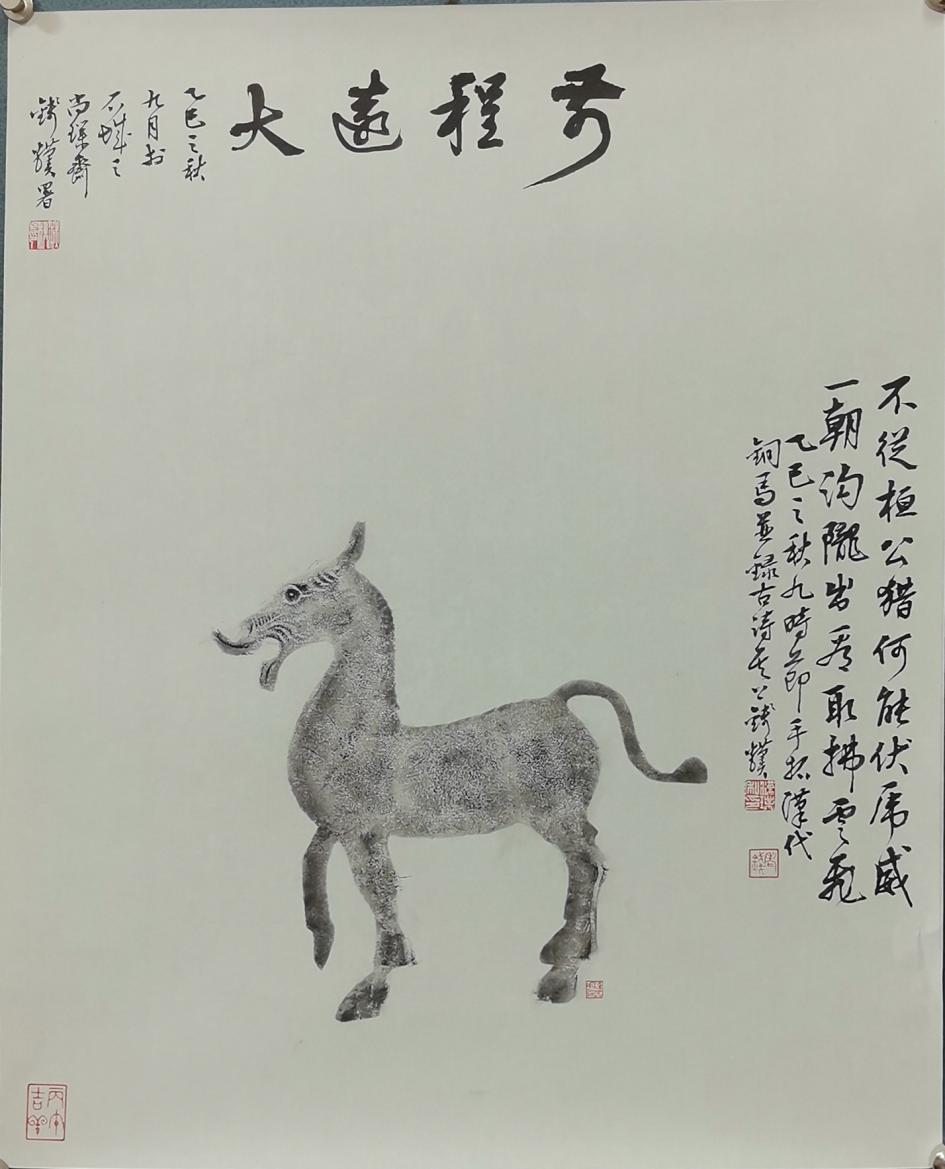 前程遠大
乙巳之秋
九月於
石城之
尚璞齋
署
不從桓公獵何能伏虎威
一朝沟隴出看取拂雲飛
乙巳之秋九時節手拓漢代
銅馬並録古詩其上
丙午
吉羊